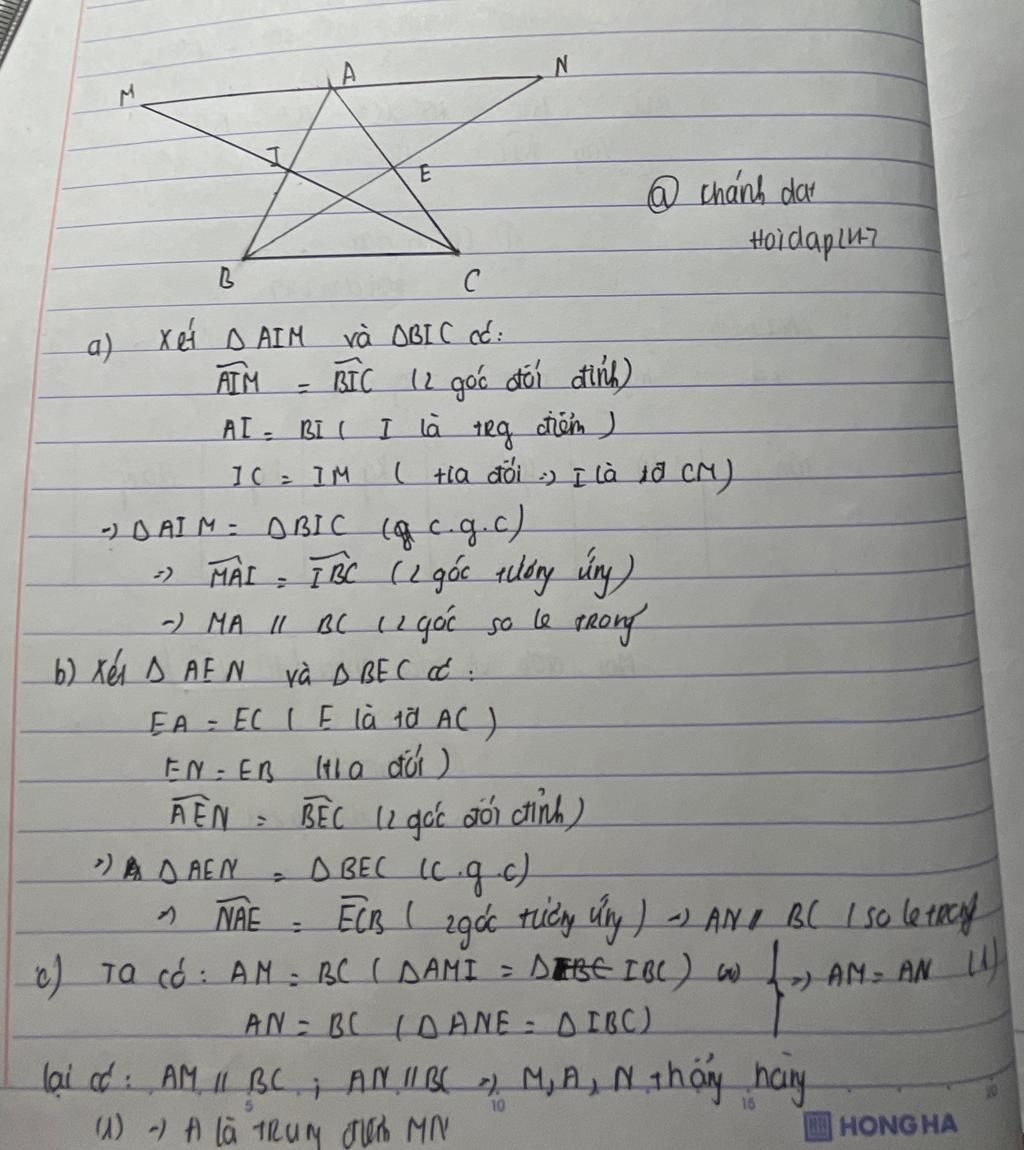 M A N
I E
B C
@ chánh dat
Hoidap247
a) Xét Δ AIM và ΔBIC có:
AIM = BIC (2 góc đối đỉnh)
AI = BI ( I là trg điểm )
IC = IM ( tia đối => I là tđ CM)
=> Δ AIM = ΔBIC (c.g.c)
=> MAI = IBC (2 góc tương ứng)
=> MA // BC (2 góc so le trong
b) Xét Δ AEN và ΔBEC có :
EA = EC ( E là tđ AC )
EN = EB (tia đối )
AEN = BEC (2 góc đối đỉnh)
=> Δ AEN = ΔBEC (c.g.c)
=> NAE = ECB ( 2góc tương ứng ) => AN // BC (so le trong
c) Ta có : AM = BC ( ΔAMI = Δ IBC ) } => AM = AN (1)
AN = BC (ΔANE = ΔIBC)
lại có : AM // BC ; AN // BC => M, A, N thẳng hàng
(1) => A là trung điểm MN
5 10 15 20
HH HONG HA